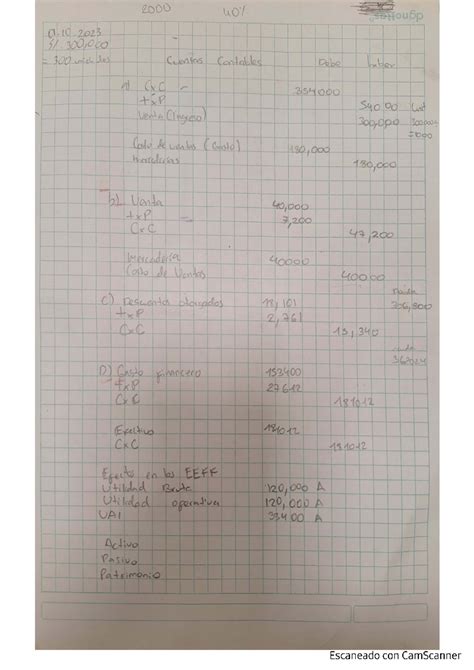 2000 40%
01.10.2023
S/. 300,000
= 300 unidades Cuentas Contables Debe haber
a) CxC 354000
txP 54000
Venta (Ingreso) 300,000
Costo de ventas (Costo) 180,000
Mercaderías 180,000
b) Venta 40,000
txP 7,200
CxC 47,200
Mercadería 40000
Costo de Ventas 40000
306,800
c) Descuentos otorgados
txP 2,761
CxC
D) Gasto financiero 153400
txP 27612
CxC 181012
Efectivo 181012
CxC 181012
Efecto en los EEFF
Utilidad Bruta 120,000 A
Utilidad operativa 120,000 A
UAI 33400 A
Activo
Pasivo
Patrimonio
Escaneado con CamScanner